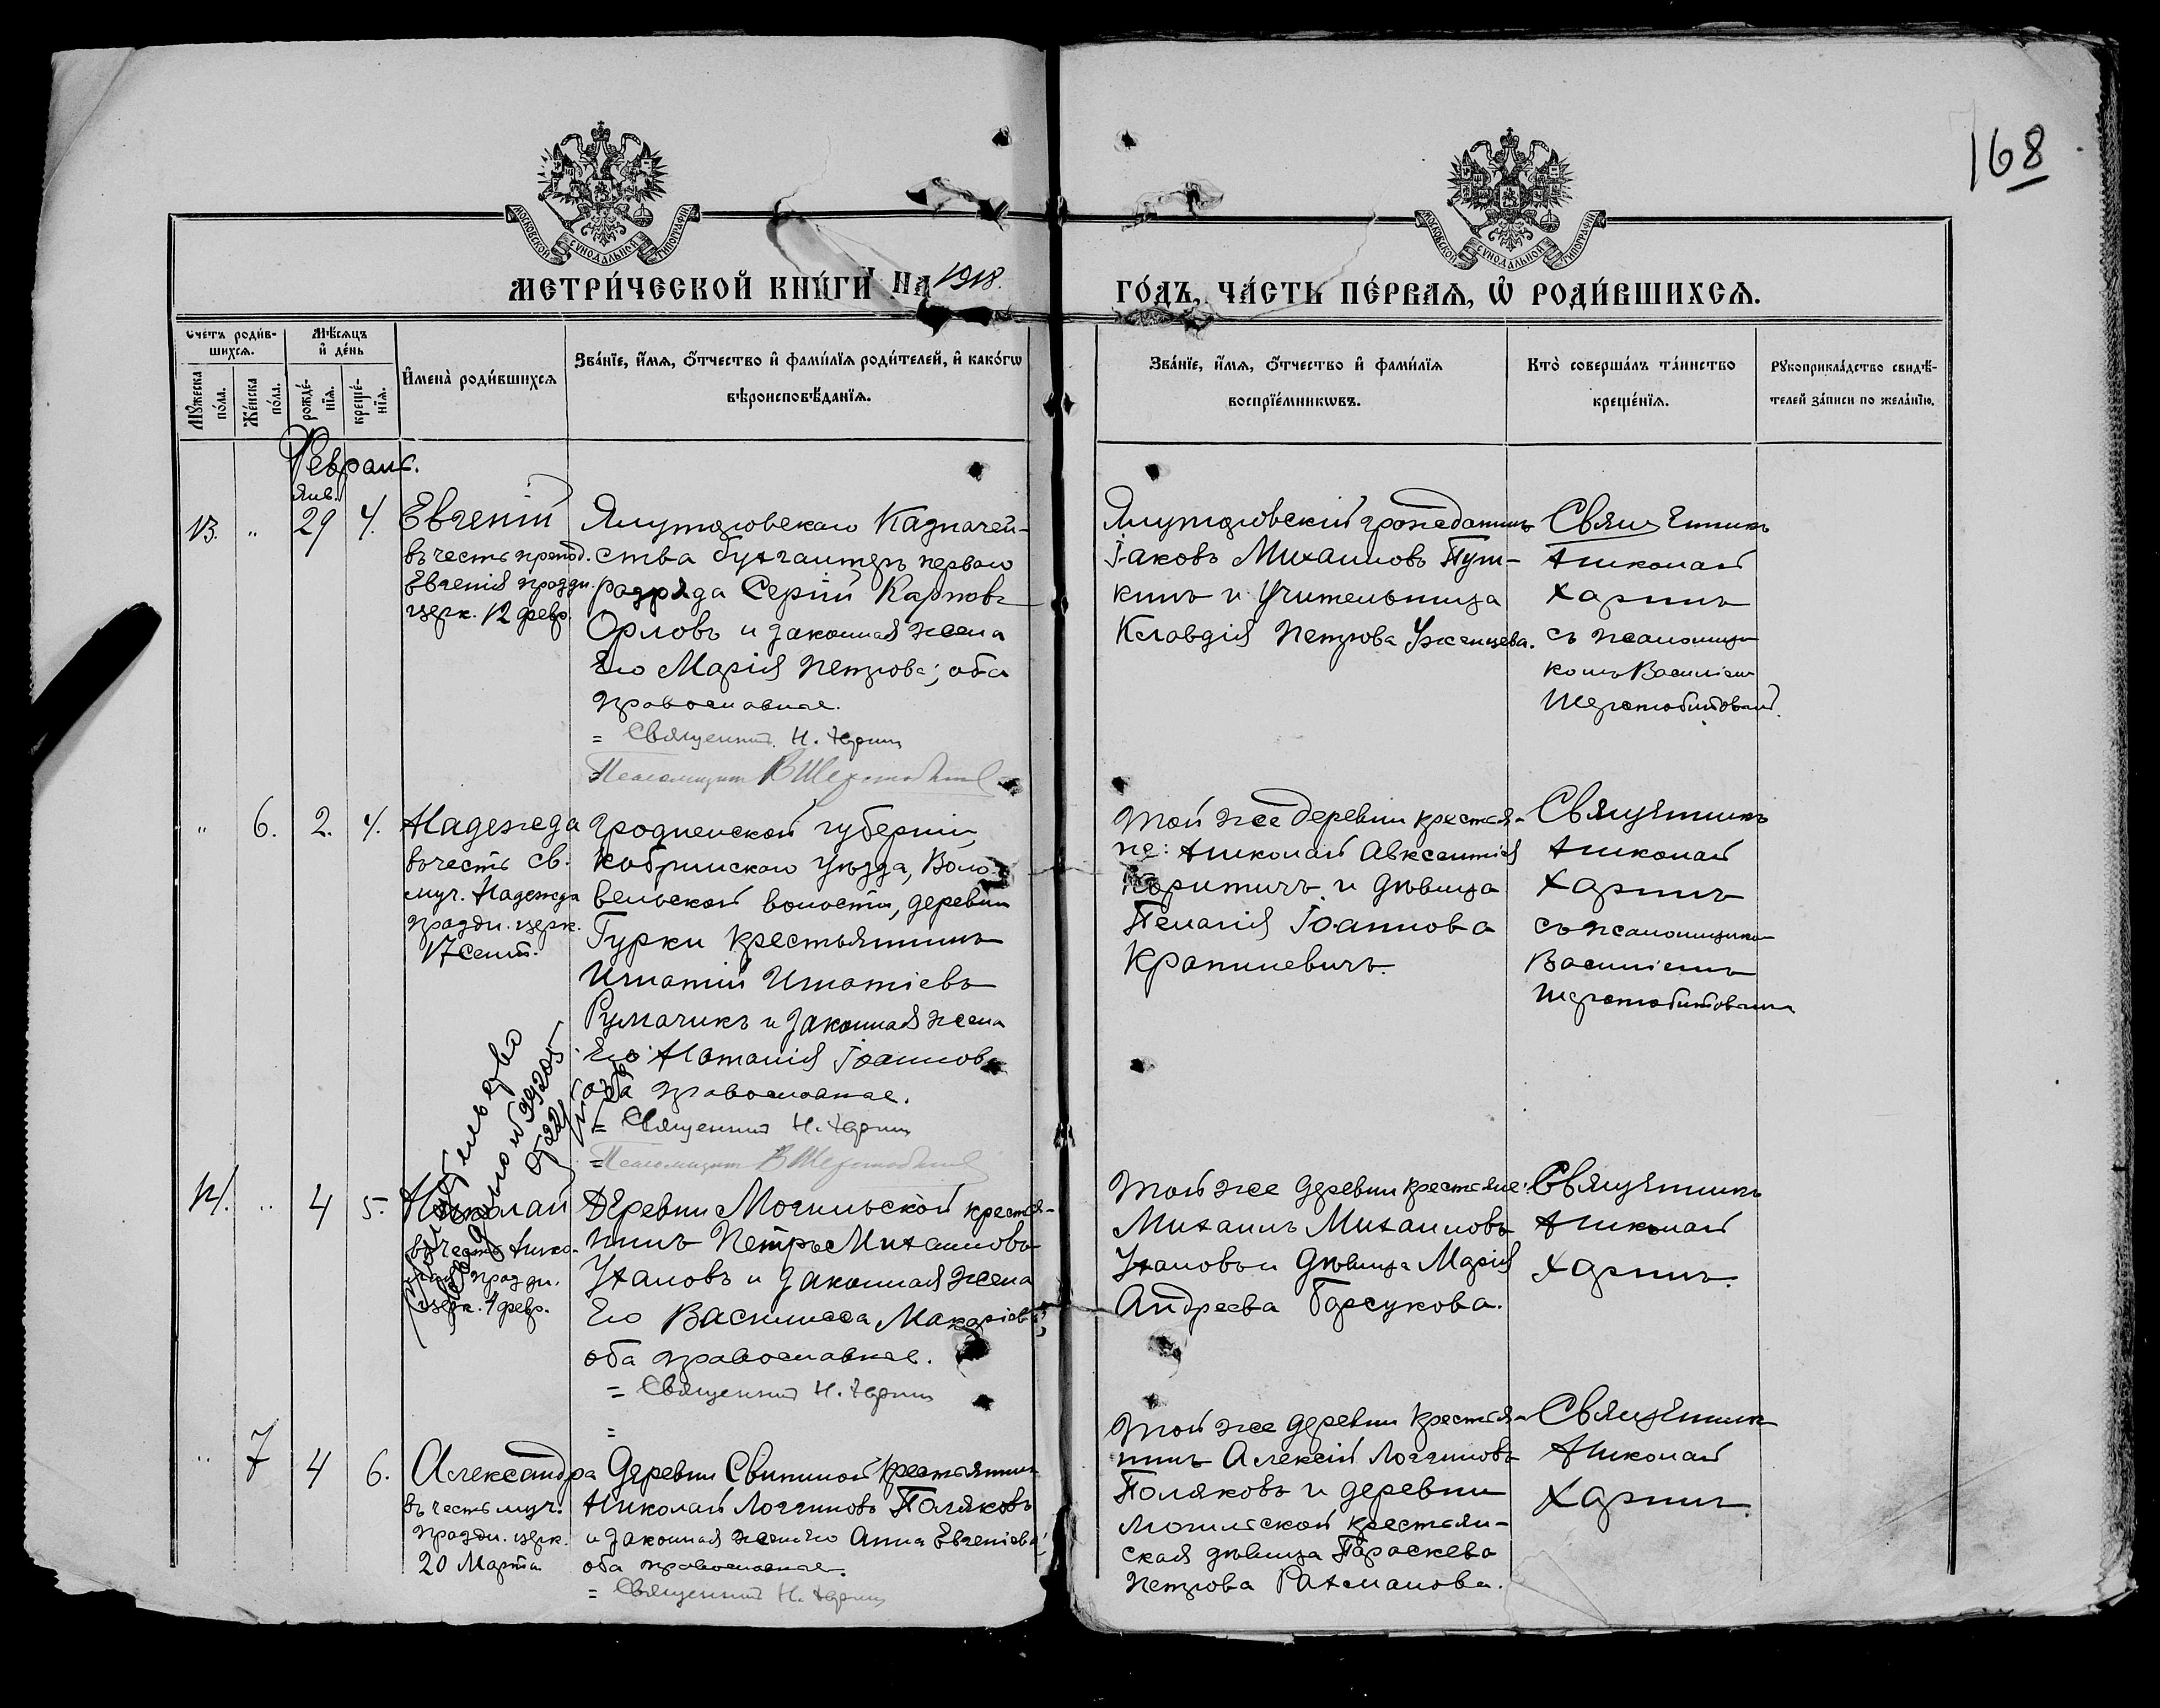 168
МОСКОВСКОЙ СУНОДАЛЬНОЙ ТИПОГРАФІИ
МОСКОВСКОЙ СУНОДАЛЬНОЙ ТИПОГРАФІИ
МЕТРИ́ЧЕСКОЙ КНИ́ГИ НА 1918.
ГО́ДЪ, ЧА́СТЬ ПЕ́РВАѦ, Ѡ҆ РОДИ́ВШИХСѦ.
Счетъ роди́в-
шихсѧ.
Мѣ́сѧцъ
и҆ де́нь
Мꙋ́жеска
по́ла.
Же́нска
по́ла.
рожде́-
нїѧ.
креще́-
нїѧ.
И҆мена̀ роди́вшихсѧ
Зва́нїе, и҆́мѧ, ѻ҆́тчество и҆ фами́лїѧ роди́телей, и҆ како́гѡ
вѣроисповѣ́данїѧ.
Зва́нїе, и҆́мѧ, ѻ҆́тчество и҆ фами́лїѧ
воспрїе́мникѡвъ.
Кто̀ соверша́лъ та́инство
креще́нїѧ.
Рꙋкоприкла́дство свидѣ́-
телей за́писи по жела́нїю.
Февраль.
Янв.
13. " 29 4.
Евгеній
въ честь препод.
Евгенія праздн.
церк. 12 февр.
Ялуторовскаго Казначей-
ства бухгалтеръ перваго
разряда Сергій Карповъ
Орловъ и законная жена
его Марія Петрова; оба
православные.
= Священник Н. Харин
Псаломщик В Шерстобитов
Ялуторовскій гражданинъ
Іаковъ Михаиловъ Пут-
кинъ и учительница
Клавдія Петрова Уженцева.
Священникъ
Николай
Харинъ
съ псаломщи-
комъ Василіем
Шерстобитовым.
" 6. 2. 4.
Надежда
въ честь св.
муч. Надежда
праздн. церк.
17 Сент.
Гродненской губерніи,
Кобринскаго уѣзда, Воло-
вельской волости, деревни
Гурки крестьянинъ
Игнатій Игнатіевъ
Румачикъ и законная жена
его Наталія Іоаннова
оба православные.
= Священник Н. Харин
= Псаломщик В Шерстобитов
Той же деревни крестья-
не: Николай Авксентіев
и дѣвица
Пелагія Іоаннова
Крапилевичъ.
Священникъ
Николай
Харинъ
съ псаломщиком
Василіемъ
Шерстобитовым
14. " 4 5.
Николай
въ честь Нико-
лая праздн.
церк. 4 февр.
Деревни Могильской крестья-
нинъ Петръ Михаиловъ
Ухаловъ и законная жена
его Василисса Макаріева;
оба православные.
= Священник Н. Харин
Той же деревни крестьяне:
Михаилъ Михаиловъ
Ухаловъ и дѣвица Марія
Андреева Барсукова.
Священникъ
Николай
Харинъ.
" 7 4 6.
Александра
въ честь муч.
праздн. церк.
20 Марта
Деревни Свининой крестьянинъ
Николай Логгиновъ Поляковъ
и законная жена его Анна Евгеніева;
оба православные.
= Священник Н. Харин
Той же деревни крестья-
нинъ Алексій Логгиновъ
Поляковъ и деревни
Могильской крестьян-
ская дѣвица Параскева
Петрова Рахманова.
Священник
Николай
Харинъ